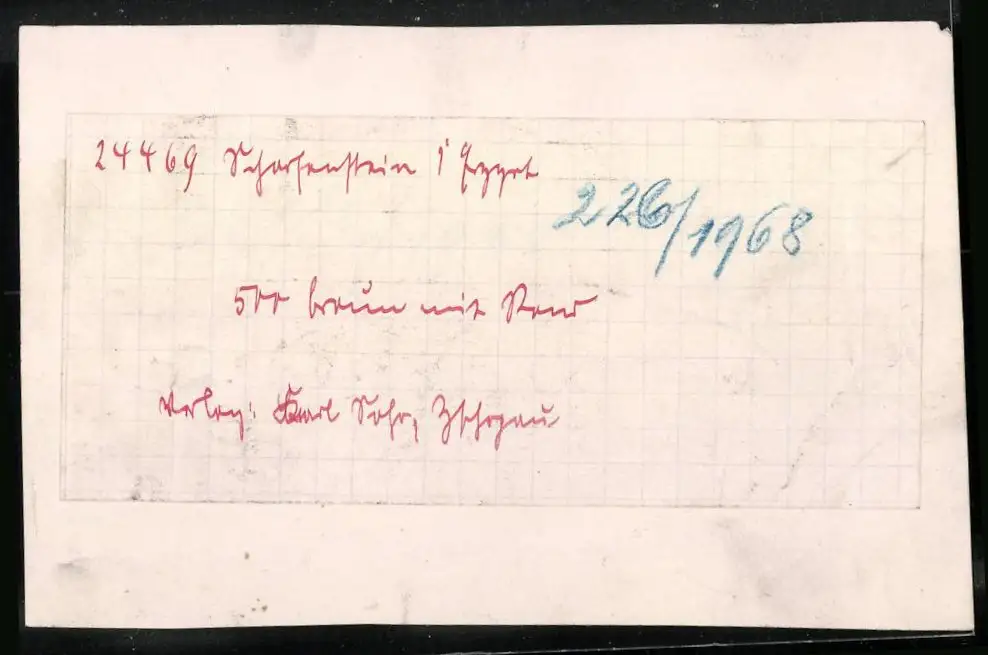 24469 Scharfenstein i Erzgeb
226/1968
500 braun mit Rand
Verlag: Karl Sohr, Zschopau